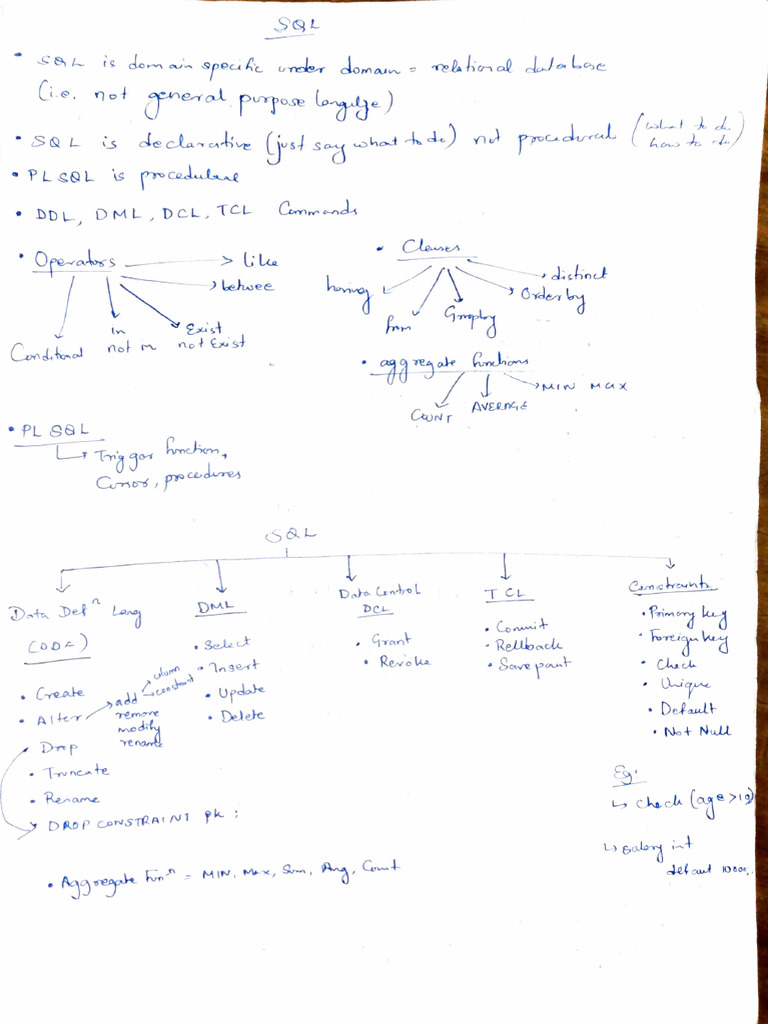 SQL
• SQL is domain specific under domain = relational database
(i.e. not general purpose langulge)
• SQL is declarative (just say what to do) not procedural (what to do
how to do)
• PL SQL is procedural
• DDL, DML, DCL, TCL Commands
• Operators
like
betwee
Exist
not Exist
In
not in
Conditional
• Clauses
distinct
Order by
Groupby
from
having
• aggregate functions
MIN MAX
AVERAGE
COUNT
• PL SQL
Trigger function,
Cursor, procedures
SQL
Data Defⁿ Lang
(DDL)
• Create
• Alter
add
column
constraint
remove
modify
rename
• Drop
• Truncate
• Rename
DROP CONSTRAINT pk :
DML
• Select
• Insert
• Update
• Delete
Data Control
DCL
• Grant
• Revoke
TCL
• Commit
• Rellback
• Savepoint
Constraints
• Primary key
• Foreign key
• Check
• Unique
• Default
• Not Null
Eg:
check (age >
salary int
default
• Aggregate Funⁿ = MIN, Max, Sum, Avg, Count